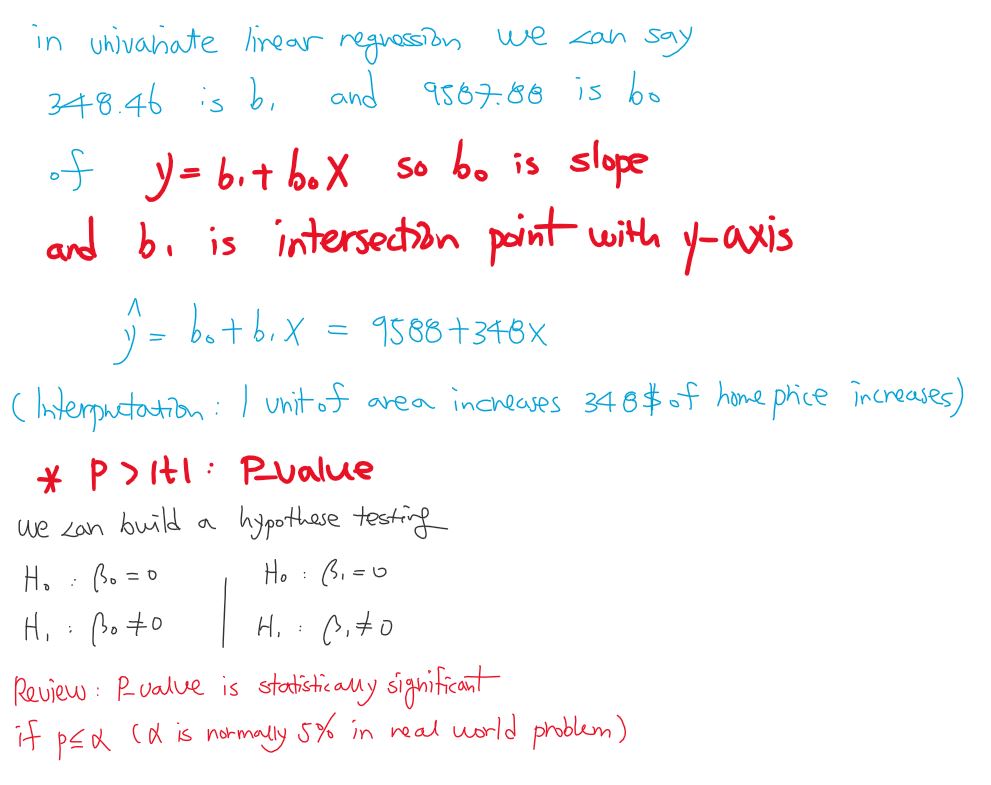 in univariate linear regression we can say
348.46 is b₁ and 9587.88 is b₀
of y = b₁ + b₀X so b₀ is slope
and b₁ is intersection point with y-axis
ŷ = b₀ + b₁X = 9588 + 348X
(Interpretation : 1 unit of area increases 348$ of home price increases)
* P > |t| : P_value
we can build a hypothese testing
H₀ : β₀ = 0 | H₀ : β₁ = 0
H₁ : β₀ ≠ 0 | H₁ : β₁ ≠ 0
Review : P_value is statistically significant
if p ≤ α (α is normally 5% in real world problem)